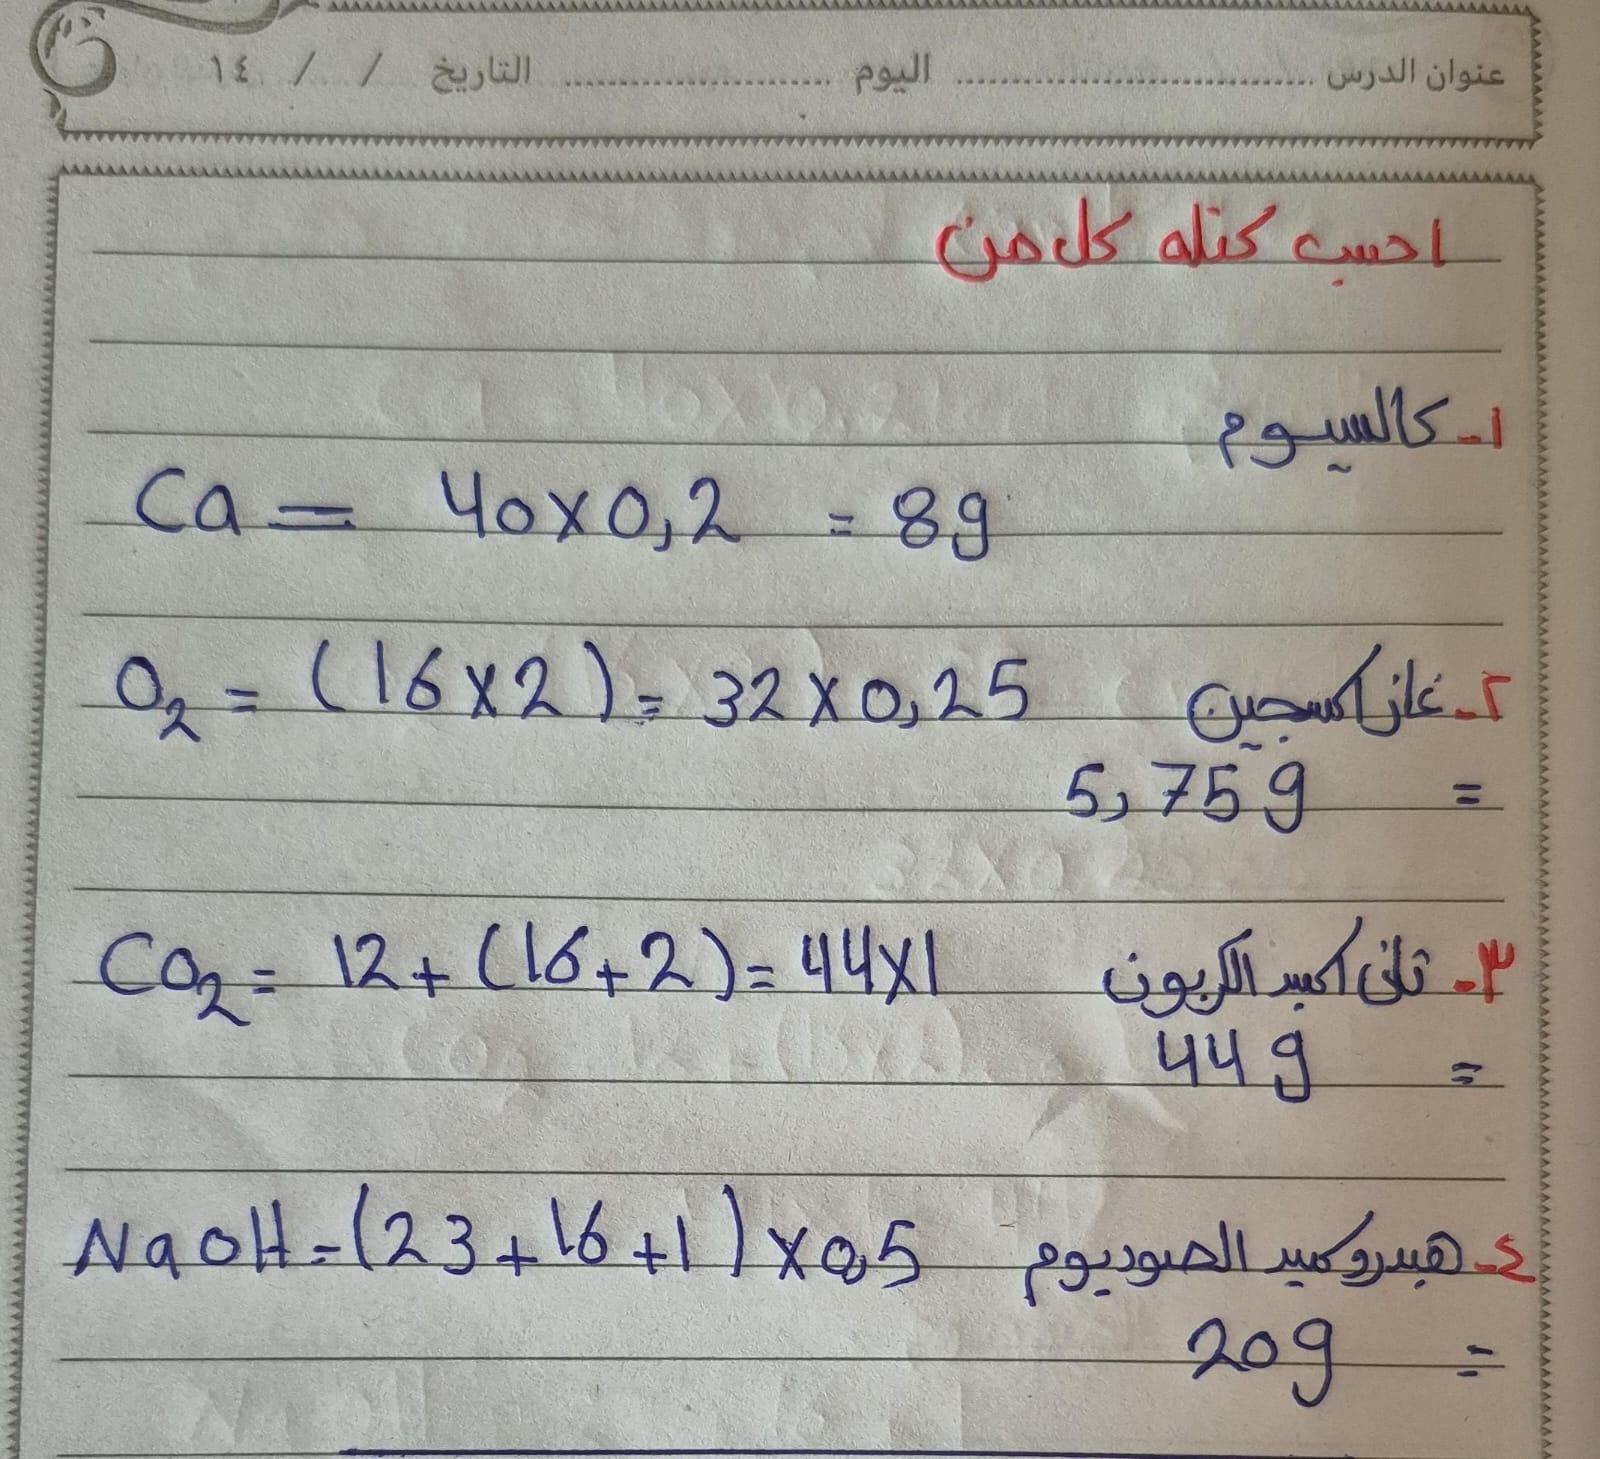 عنوان الدرس ........................ اليوم ................ التاريخ / / ١٤
احسب كتله كل من
١- كالسيوم
Ca = 40x0,2 = 8g
٢- غاز اكسجين O₂ = (16x2) = 32x0,25
= 5,75g
٣- ثاني اكسيد الكربون CO₂ = 12+(16+2) = 44x1
= 44g
٤- هيدروكسيد الصوديوم NaOH = (23+16+1)x0,5
= 20g